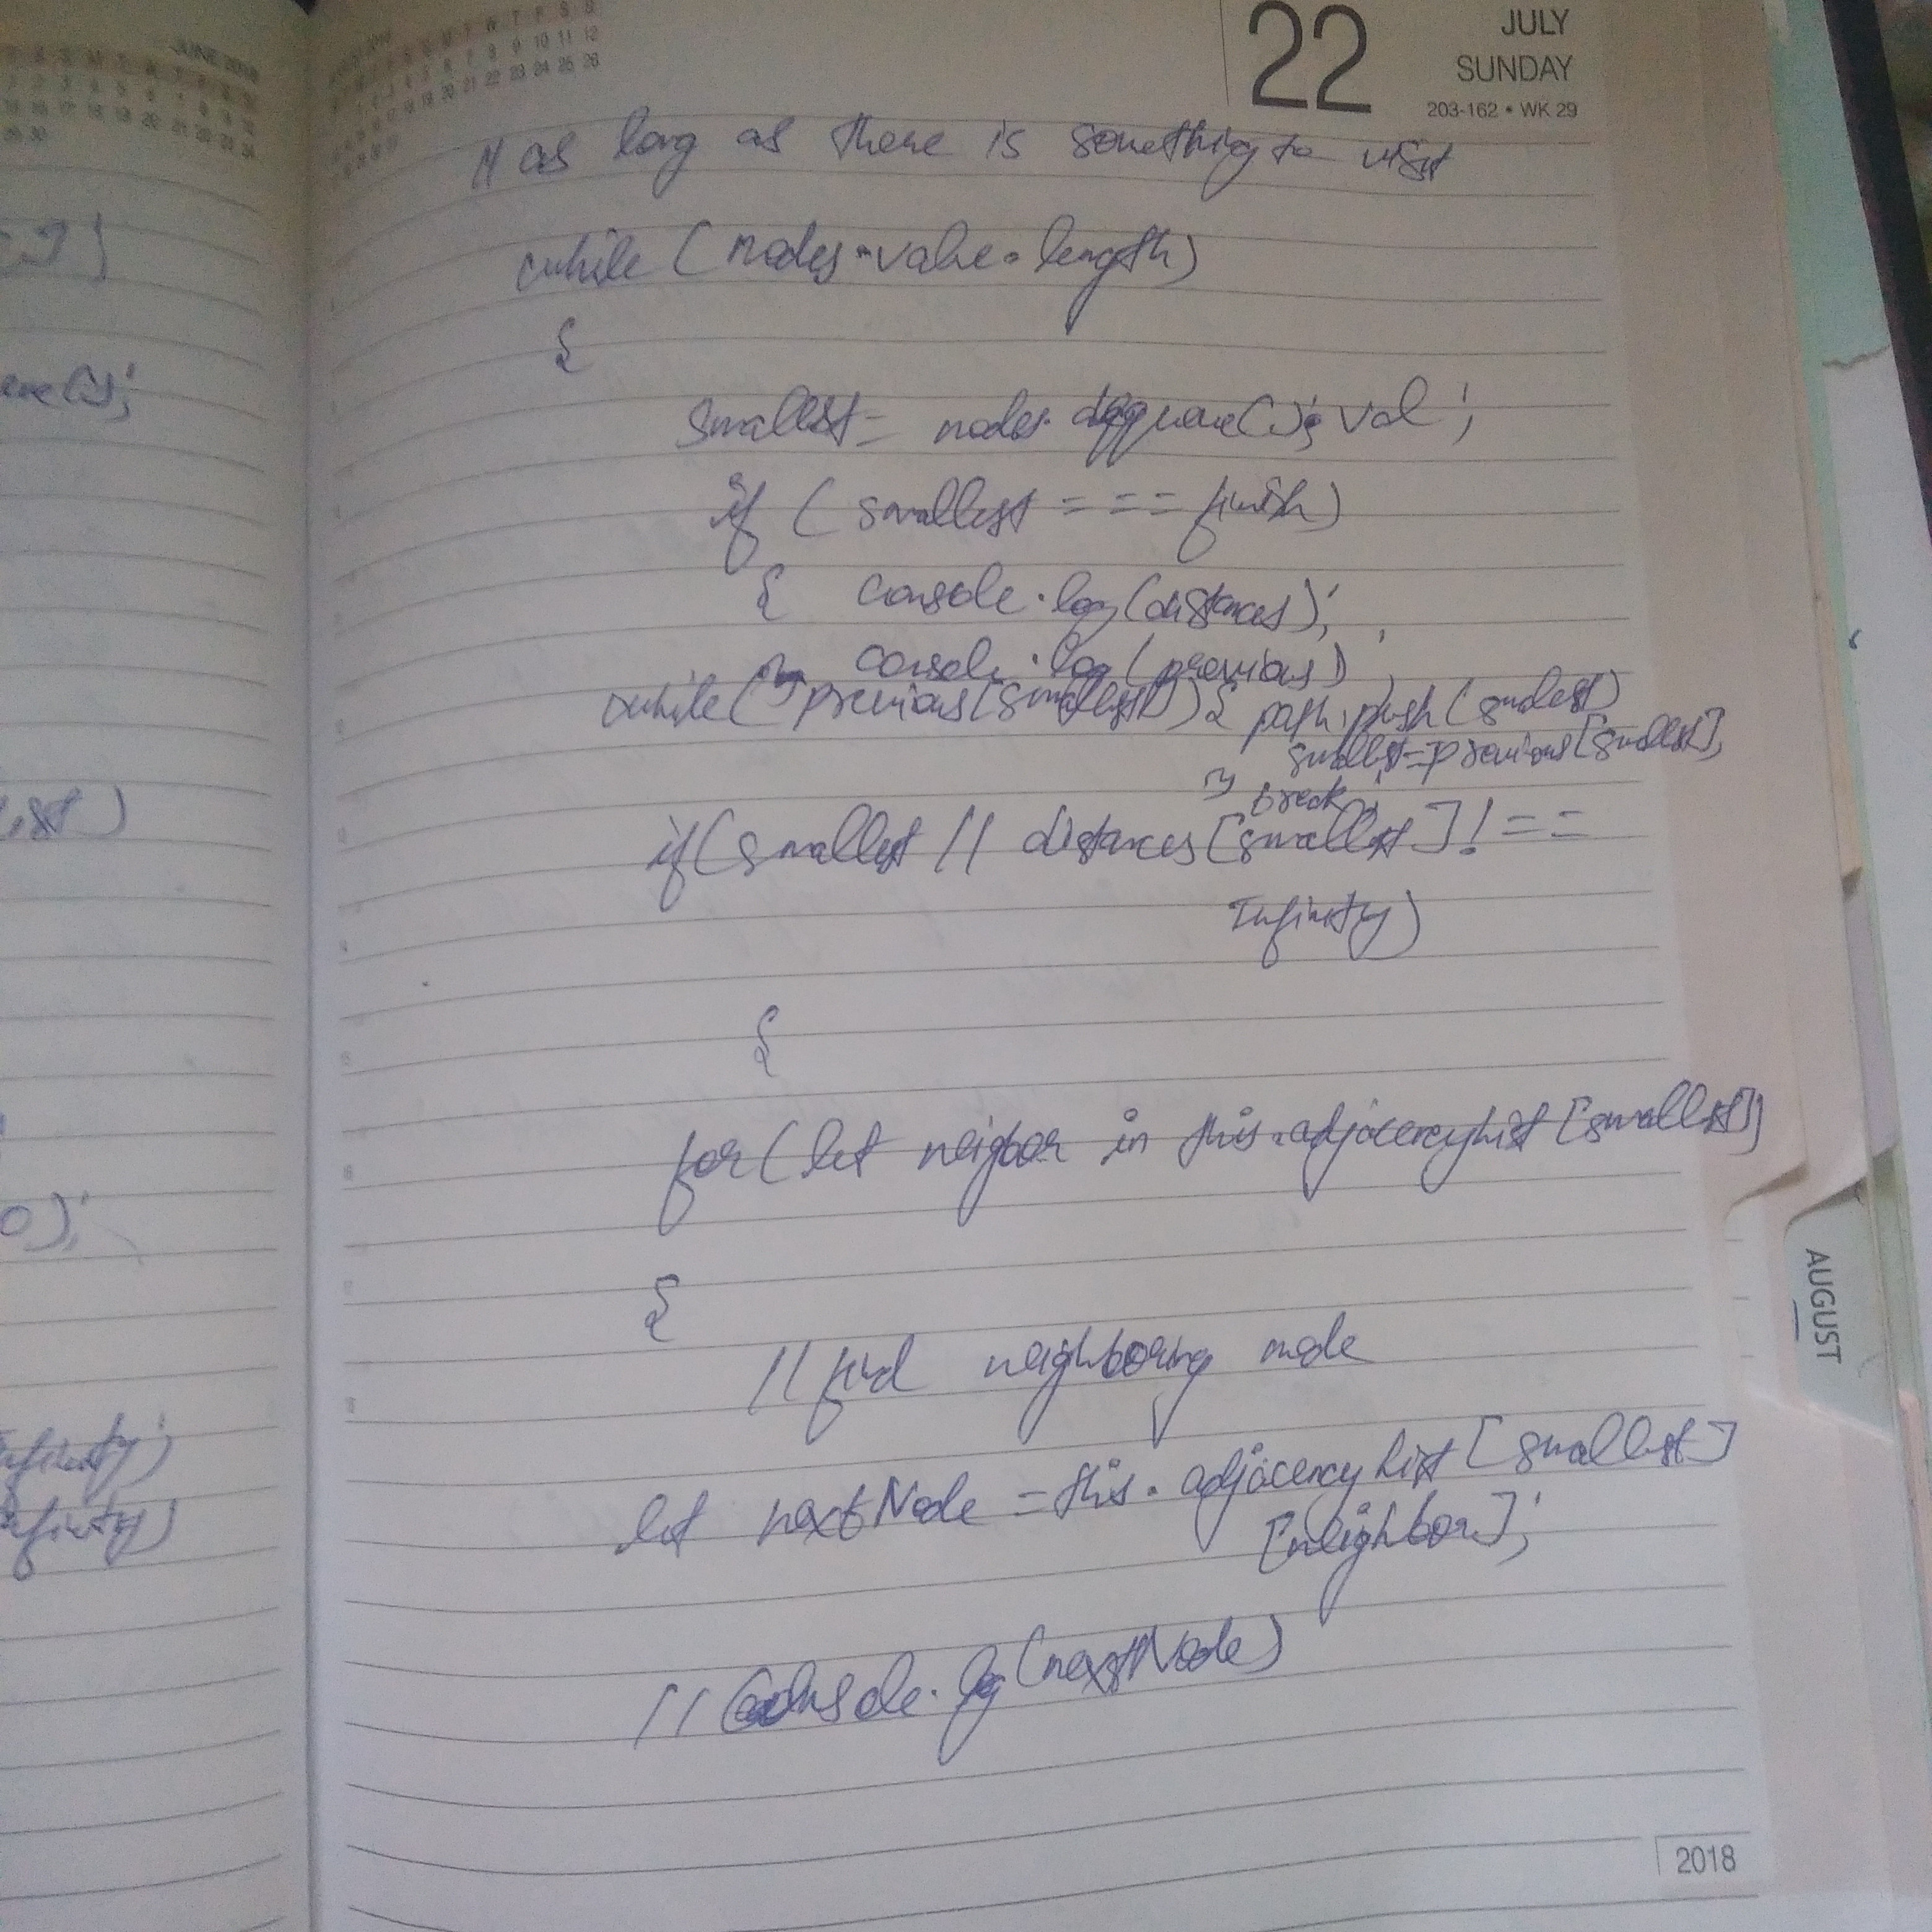 JUNE 2018
22
JULY
SUNDAY
203-162 • WK 29
// as long as there is something to visit
while (nodes.value.length)
{
smallest = nodes. dequeue(); val ;
if ( smallest = = = finish)
{ console.log(distances);
console.log(previous);
while( previous[smallest]) { path.push(smallest)
smallest=previous[smallest];
} break;
if(smallest || distances[smallest] ! = =
Infinity)
{
for( let neigbor in this.adjacencyList [smallest])
{
// find neighboring node
let nextNode = this. adjacencyList [smallest]
[neighbor];
// Console.log (nextNode)
AUGUST
2018
ist )
0);
Infinity)
Infinity)